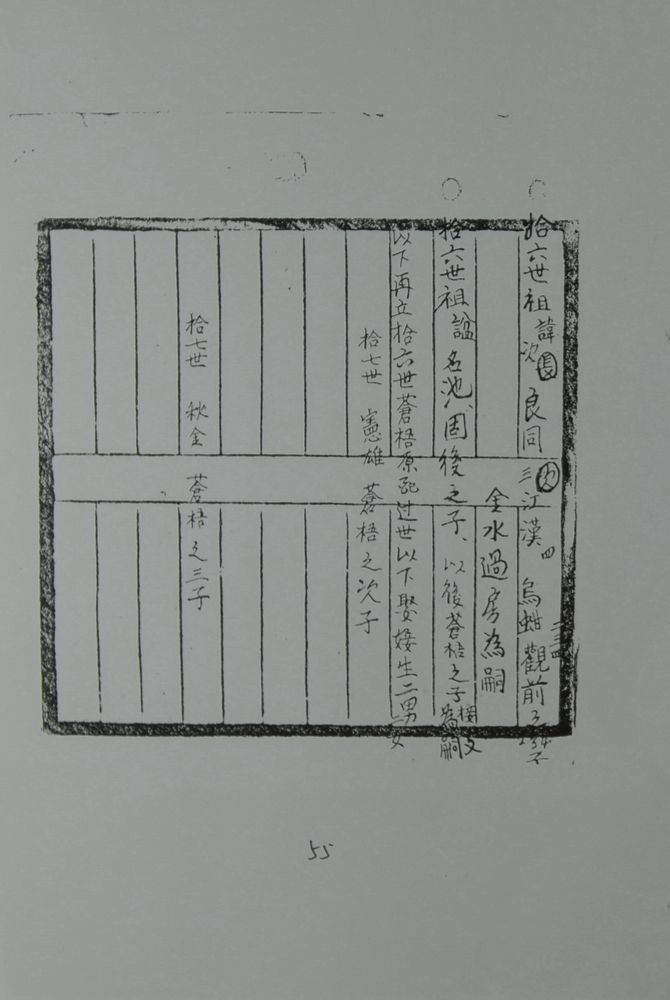 拾六世祖諱 長 次 良同 次 三 江漢 四 烏蚶 觀前
金水過房為嗣
拾六世祖諡 名池、固後之子、以後蒼梧之子 為嗣
以下再立拾六世蒼梧原配过世以下娶婑生二男一女
拾七世 憲雄 蒼梧之次子
拾七世 秋金 蒼梧之三子
55